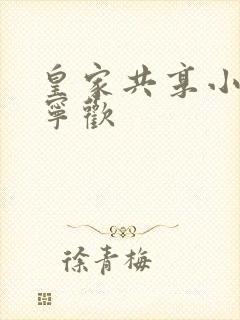 皇家共享小
寧歡
徐青梅